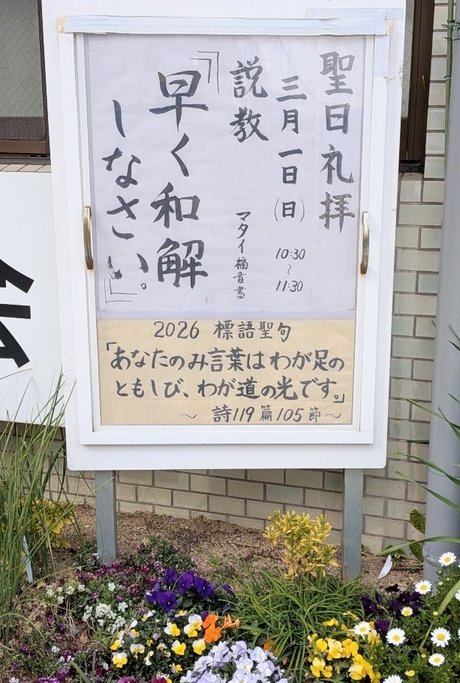 聖日礼拝
三月一日(日)
10:30
～
11:30
説教
マタイ福音書
『早く和解
しなさい。』
2026 標語聖句
「あなたのみ言葉は わが足の
ともしび、わが道の光です。」
～ 詩119篇105節～